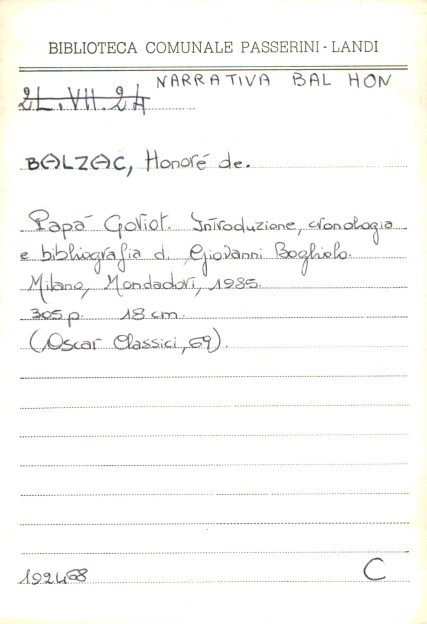 BIBLIOTECA COMUNALE PASSERINI - LANDI
NARRATIVA BAL HON
2L.VII.24
BALZAC, Honoré de.
Papà Goriot. Introduzione, cronologia
e bibliografia di Giovanni Bogliolo.
Milano, Mondadori, 1985.
305 p. 18 cm.
(Oscar Classici, 69).
192468
C